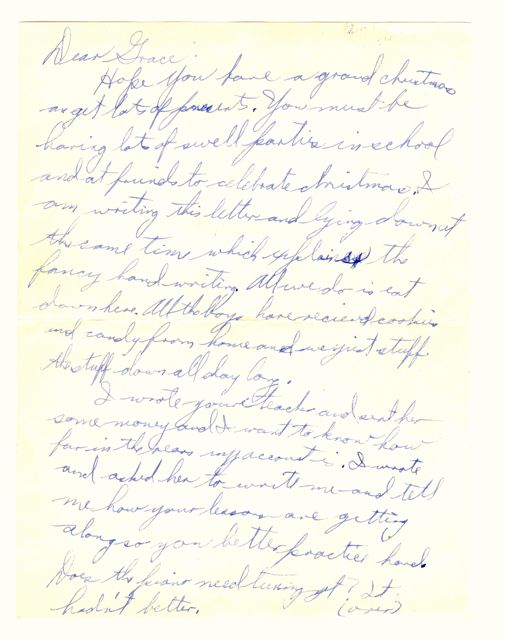 Dear Grace:
Hope you have a grand christmas
an get lots of presents. You must be
having lots of swell partis in school
and at friends to celebrate christmas. I
am writing this letter and lying down at
the same time which explains the
fancy handwriting. All we do is eat
down here. All the boys have recieved cookies
and candy from home and we just stuff
the stuff down all day long.
I wrote your teacher and sent her
some money and I want to know how
far in the rears my account is. I wrote
and asked her to write me and tell
me how your lessons are getting
along so you better practice hard.
Does the piano need tuning yet? It
hadn't better. (over)